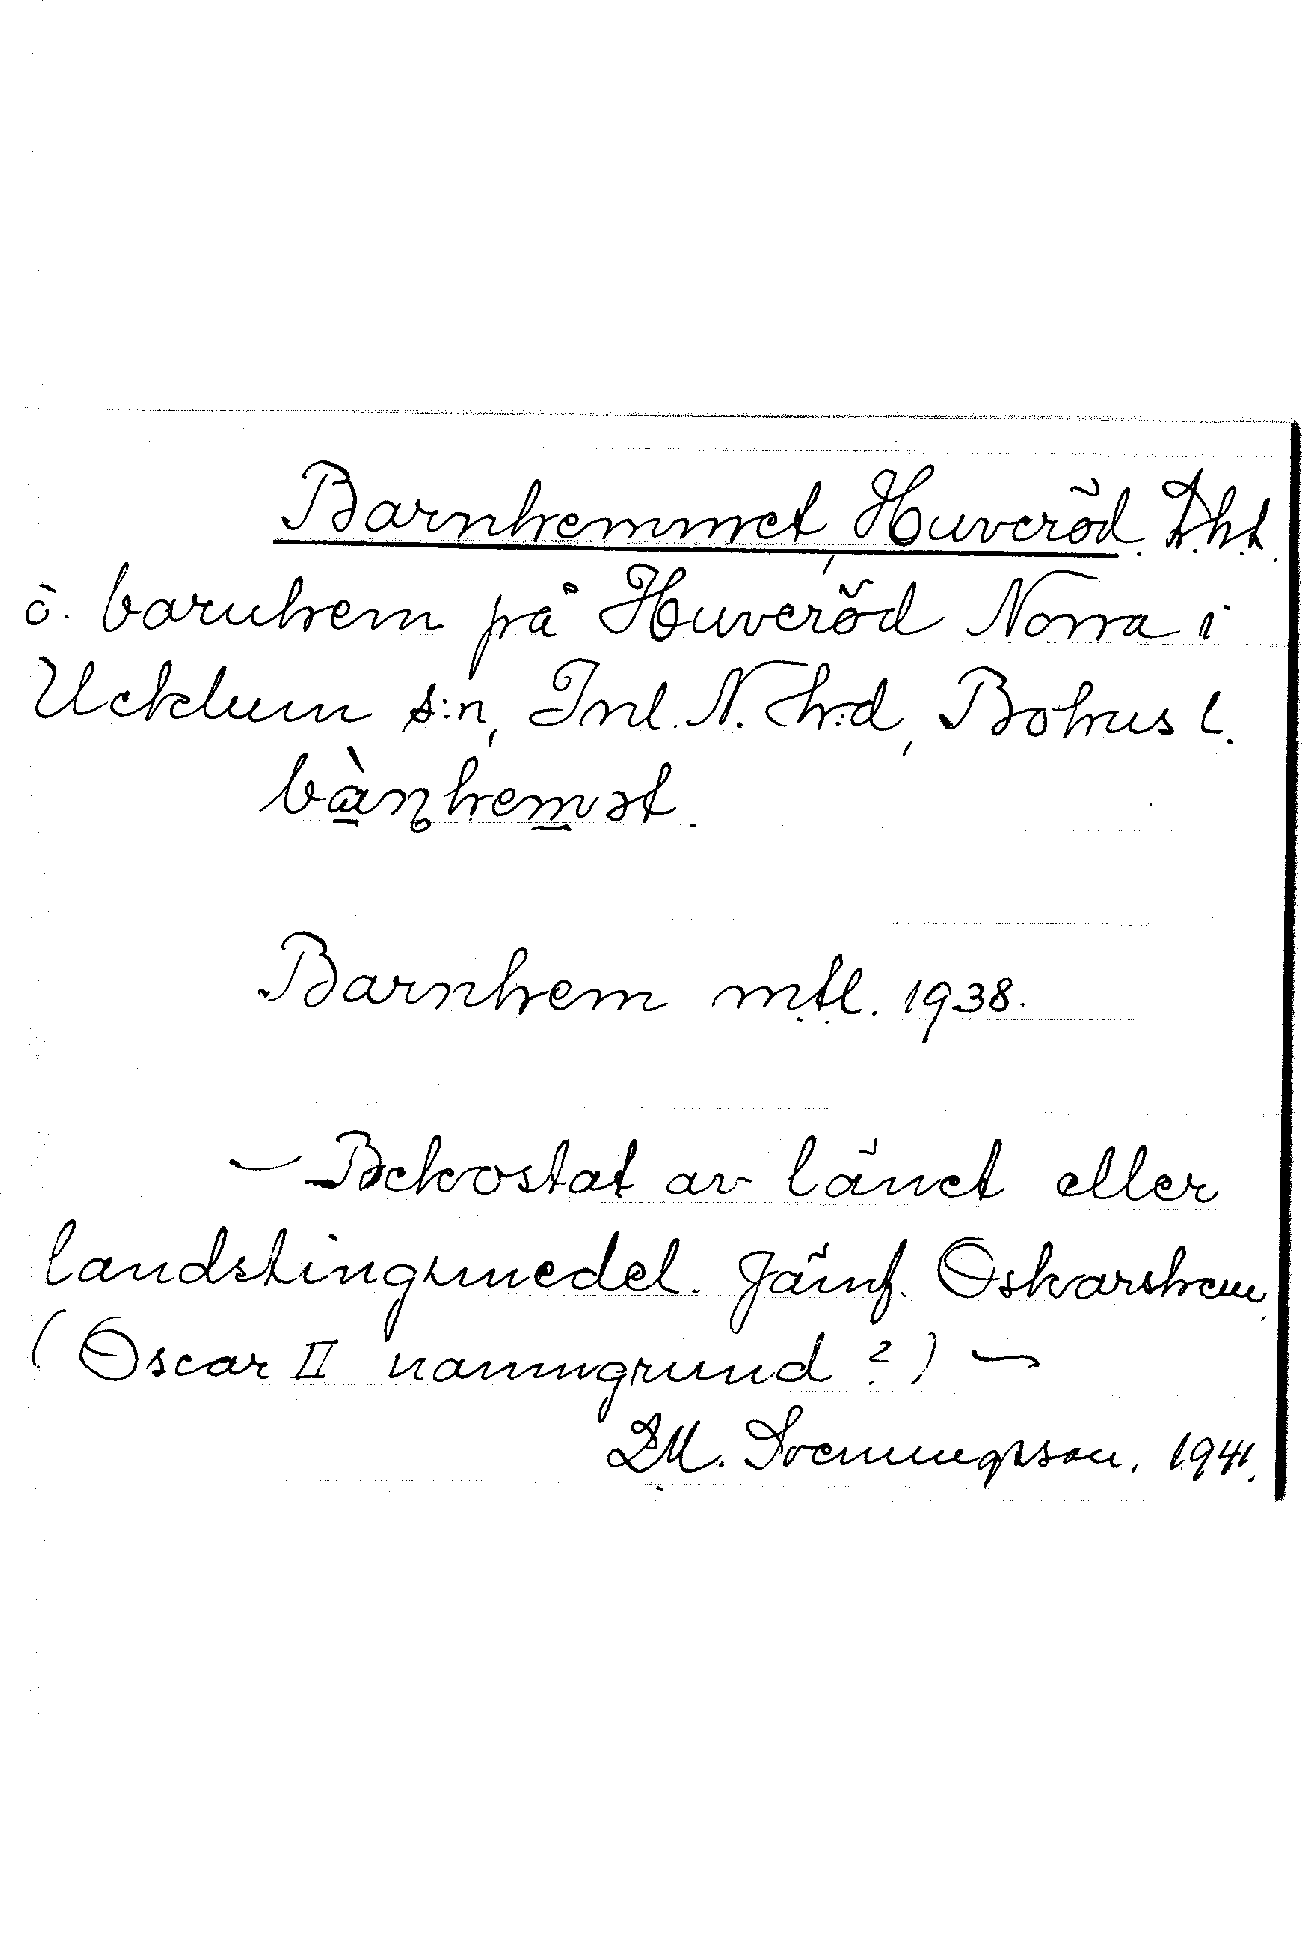 Barnhemmet, Huveröd. Dht.
o. barnhem på Huveröd Norra i
Ucklum s:n, Inl. N. h:d, Bohus l.
bàn̥hemət.
Barnhem mtl. 1938.
— Bekostat av länet eller
landstingsmedel. Jämf. Oskarshem
(Oscar II namngrund?) —
D.M. Svenningsson. 1941.